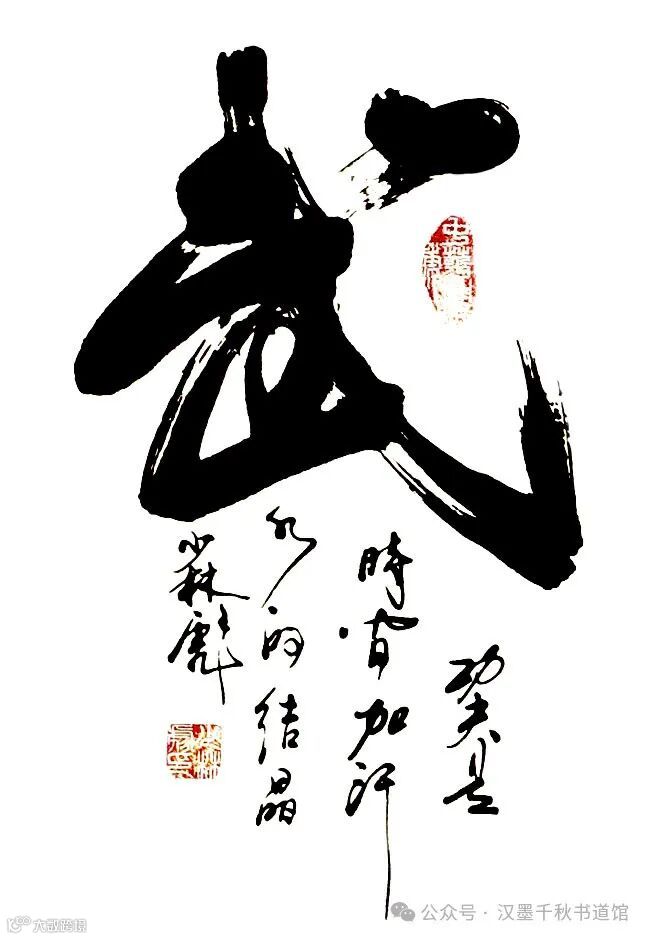 武
功夫是
時間加汗
水的结晶
公众号 · 汉墨千秋书道馆
大数跨境